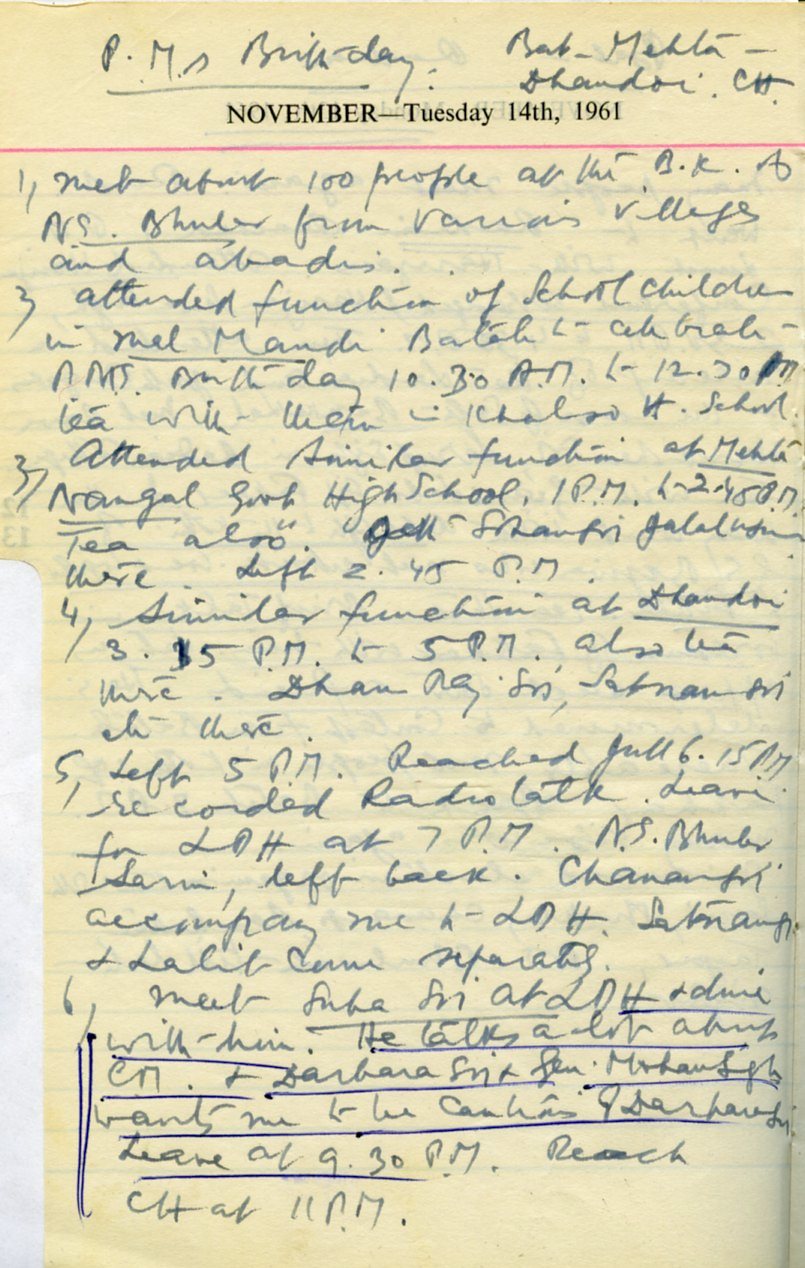 P.M.s Birthday: Bat- Mehta-
Dhandoi. CH.
NOVEMBER—Tuesday 14th, 1961
1, met about 100 people at the B.K. of
N.S. Bhuler from various villages
and abadis.
2, attended function of School children
in Mal Mandi Batala to celebrate
P.M.S. Birthday 10.30 A.M. to 12.30 PM
tea with them in Khalsa H. School.
3, Attended similar function at Mehta
Nangal Govt High School. 1 P.M. to 2.45 P.M.
Tea also.
there. Left 2.45 P.M.
4, Similar function at Dhandoi
3.15 P.M. to 5 P.M. also tea
there. Dham Raj Sri, Satnam Sri
etc there.
5, Left 5 P.M. Reached Jull 6.15 PM
recorded Radio talk. Leave
for LDH at 7 P.M. N.S. Bhuler
left back. Chanan Sri
accompany me to LDH. Satnam Sri
& Lalit come separately.
6, meet Suba Sri at LDH & dine
with him. He talks a lot about
CM. & Darbara Sri & Gen. Mohan Sgh
wants me to be cautious of Darbara Sri
Leave at 9.30 P.M. Reach
CH at 11 P.M.